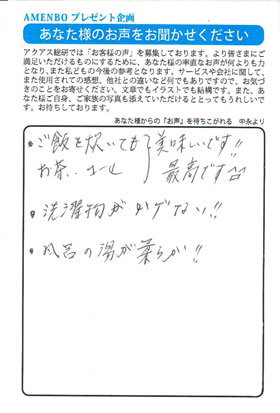 AMENBO プレゼント企画
あなた様のお声をお聞かせください
アクアス総研では「お客様の声」を募集しております。より皆さまにご
満足いただけるものにするために、あなた様の率直なお声が何よりも力
となり、また私どもの今後の参考となります。サービスや会社に関して、
また使用されての感想、他社との違いなど何でもありですので、お気づ
きのことをお寄せください。文章でもイラストでも結構です。また、あ
なた様ご自身、ご家族の写真も添えていただけるととってもうれしいで
す。お待ちしております。
あなた様からの「お声」を待ちこがれる 中永より
・ご飯を炊いても 美味しいです!!
お茶、コーヒー 最高です
・洗濯物が
・風呂の湯が柔らか!!